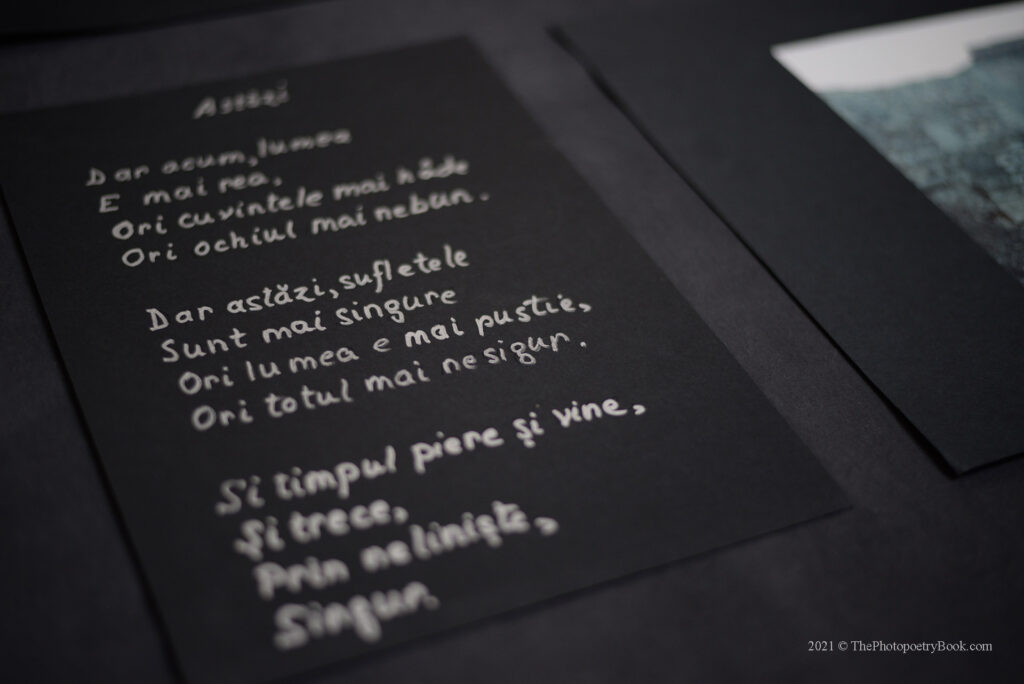 Astăzi
Dar acum, lumea
E mai rea,
Ori cuvintele mai hâde
Ori ochiul mai nebun.
Dar astăzi, sufletele
Sunt mai singure
Ori lumea e mai pustie,
Ori totul mai nesigur.
Și timpul piere și vine,
Și trece,
Prin neliniște,
Singur.
2021 © ThePhotopoetryBook.com